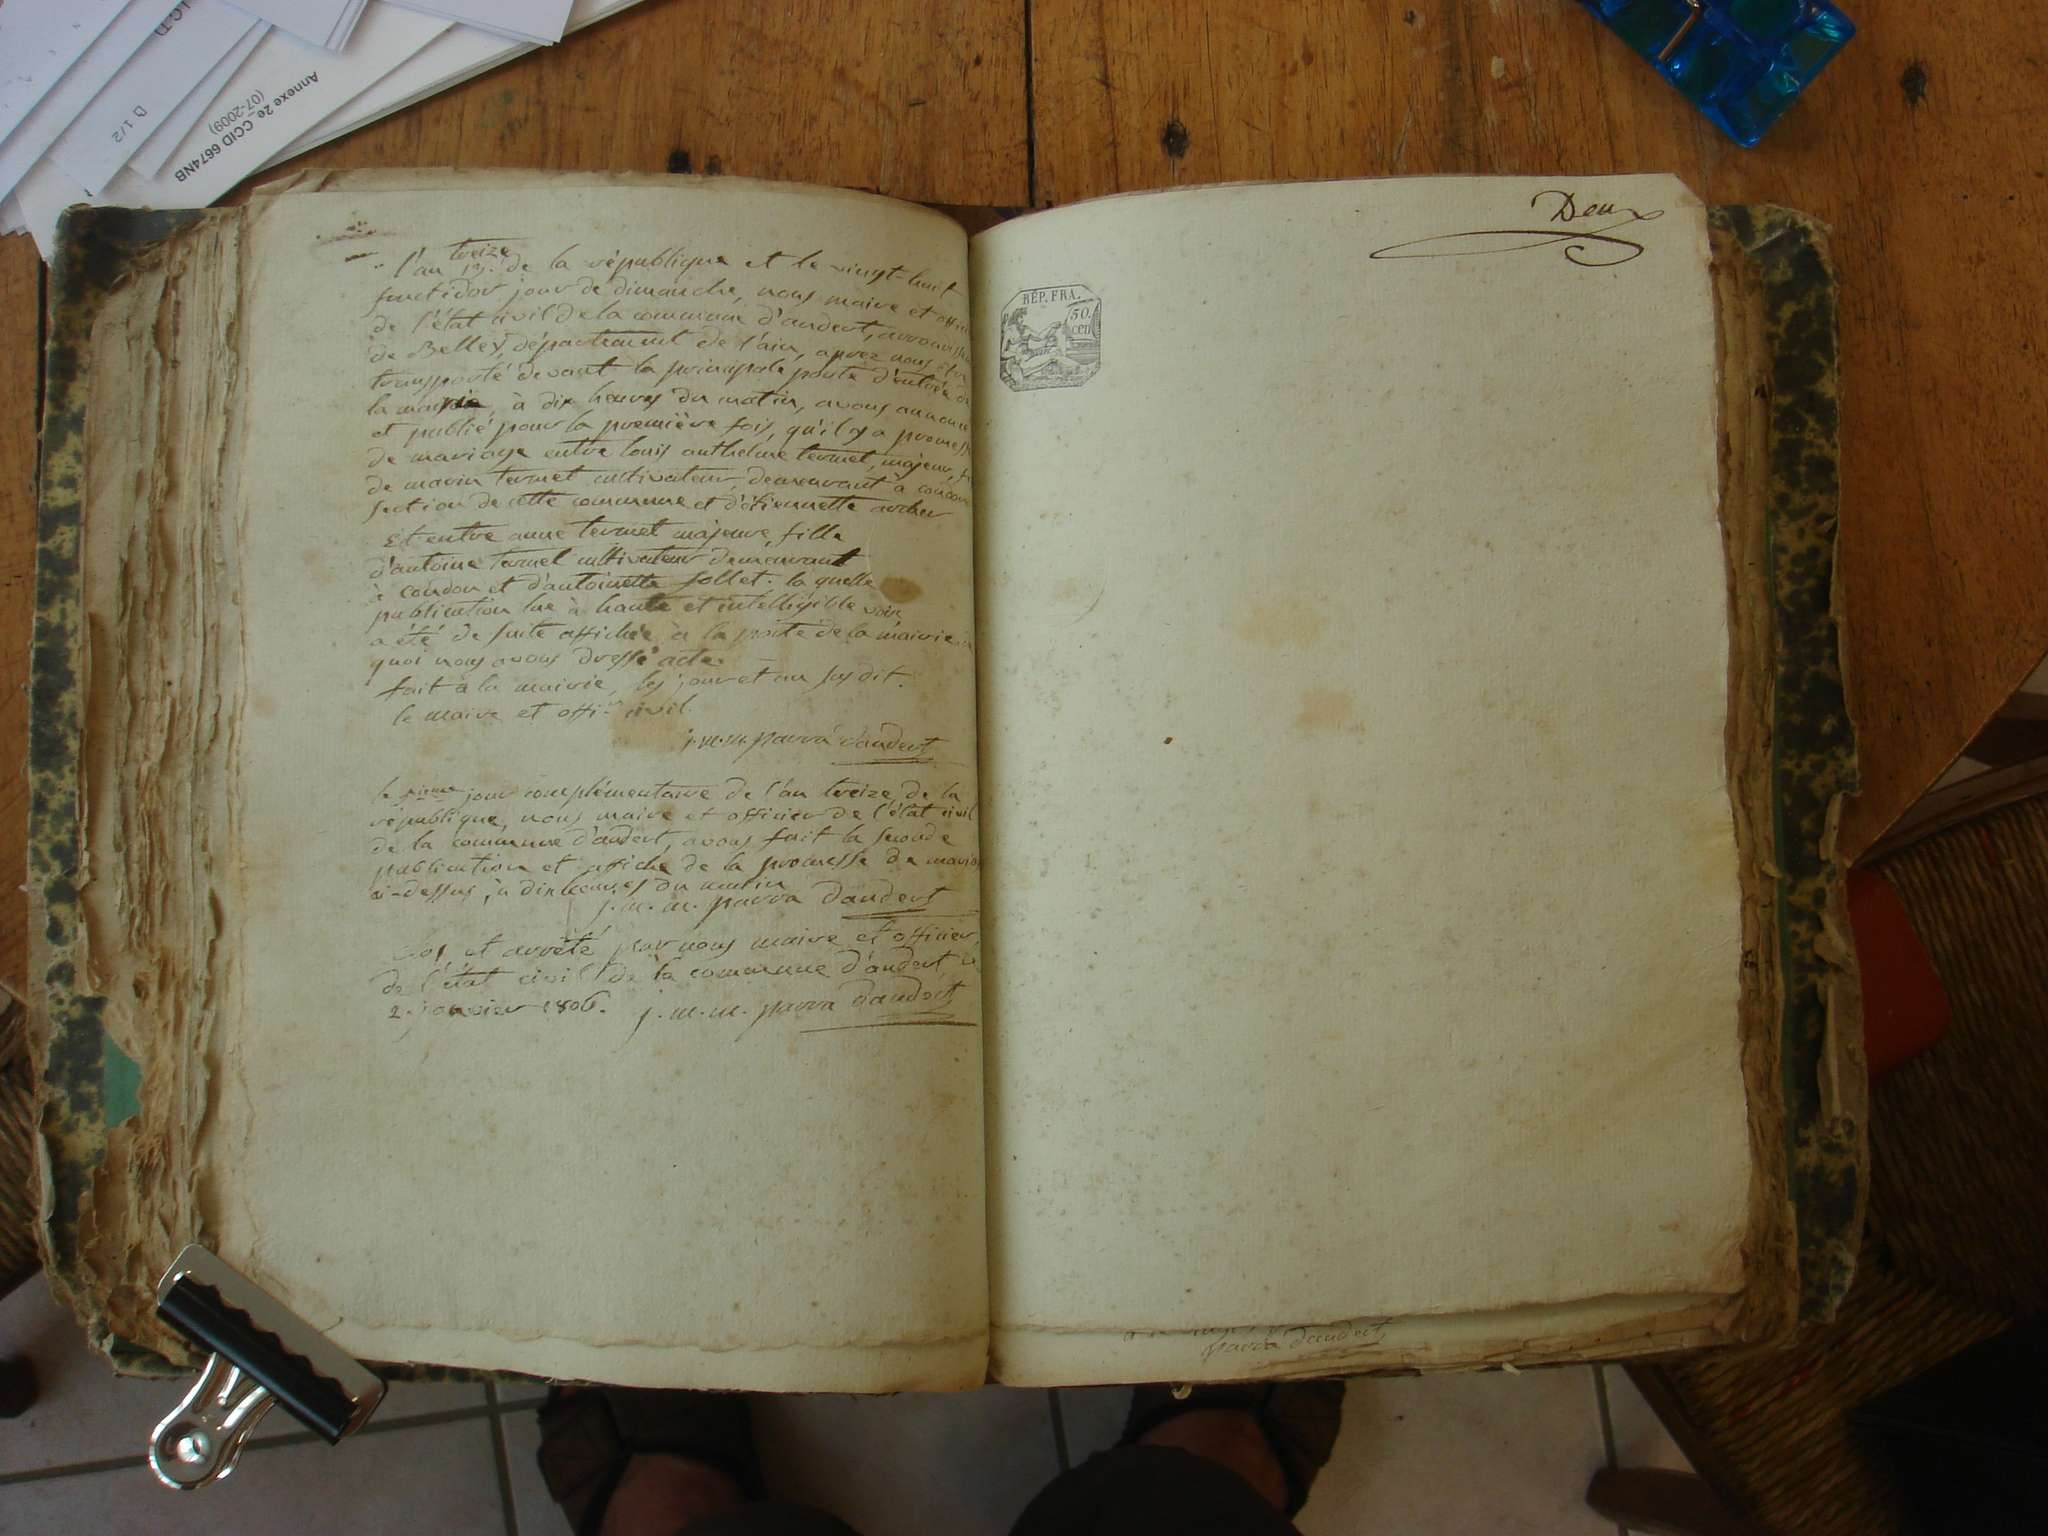 I.G.D
1/2
Annexe 2e CCID 6674NB
(07-2009)
treize
l'an 13. de la république et le vingt-huit
fructidor jour de dimanche, nous maire et offici
de l'état civil de la commune d'andert, arrondissem
de Belley, département de l'ain, aprez nous etre
transporté devant la principale porte d'entrée de
la mairie, à dix heures du matin, avons annoncé
et publié pour la premiere fois, qu'il y a promesse
de mariage entre louis anthelme termet, majeur, fi
de marin termet cultivateur, demeurant à condon
section de cette commune et d'étiennette archer
Et entre anne termet majeure, fille
d'antoine termet cultivateur demeurant
à condon et d'antoinette follet. la quelle
publication lue à haute et intelligible voix
a été de suite affichée à la porte de la mairie
quoi nous avons dressé acte.
fait à la mairie, les jour et an susdit.
le maire et offi.er civil.
j. m. m. parra d'andert
le jour complémentaire de l'an treize de la
république, nous maire et officier de l'état civil
de la commune d'andert, avons fait la seconde
publication et affiche de la promesse de maria
ci-dessus, à dix heures du matin
j. m. m. parra dandert
clos et arrêté par nous maire et officier
de l'état civil de la commune d'andert, le
2. janvier 1806. j. m. m. parra dandert
Deux
RÉP. FRA.
50.
cen
parra dandert